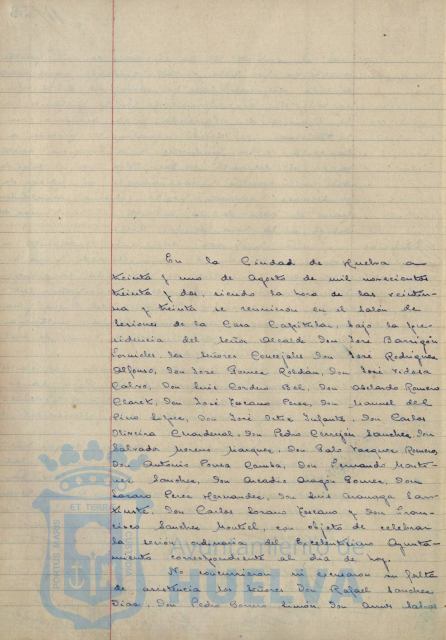 En la Ciudad de Huelva a
treinta y uno de Agosto de mil novecientos
treinta y dos, siendo la hora de las veintiu-
na y treinta se reunieron en el salón de
sesiones de la Casa Capitular, bajo la pre-
sidencia del Señor Alcalde Don José Barrigón
Fornieles, los Señores Concejales Don José Rodríguez
Alfonso, Don José Ponce Roldán, Don José Vidosa
Calvo, Don Luis Cordero Bel, Don Abelardo Romero
Claret, Don José Toscano Perez, Don Manuel del
Pino López, Don José Ortiz Infante, Don Carlos
Oliveira Chardenal, Don Pedro Cerrejón Sanchez, Don
Salvador Moreno Marquez, Don Pablo Vazquez Romero,
Don Antonio Ponce Don Fernando Monta-
Sanchez, Don Arcadio Aragón Gomez, Don
Perez Hernandez, Don Luis
Don Carlos Toscano y Don Fran-
cisco Sanchez con objeto de celebrar
la sesión ordinaria del Excelentísimo Ayunta-
miento correspondiente al día de hoy.
No concurrieron ni excusaron su falta
de asistencia los Señores Don Rafael Sanchez
Díaz, Don Pedro Borrero Limón, Don
Ayuntamiento de
HUELVA
PORTUS MARIS
ET TERRAE